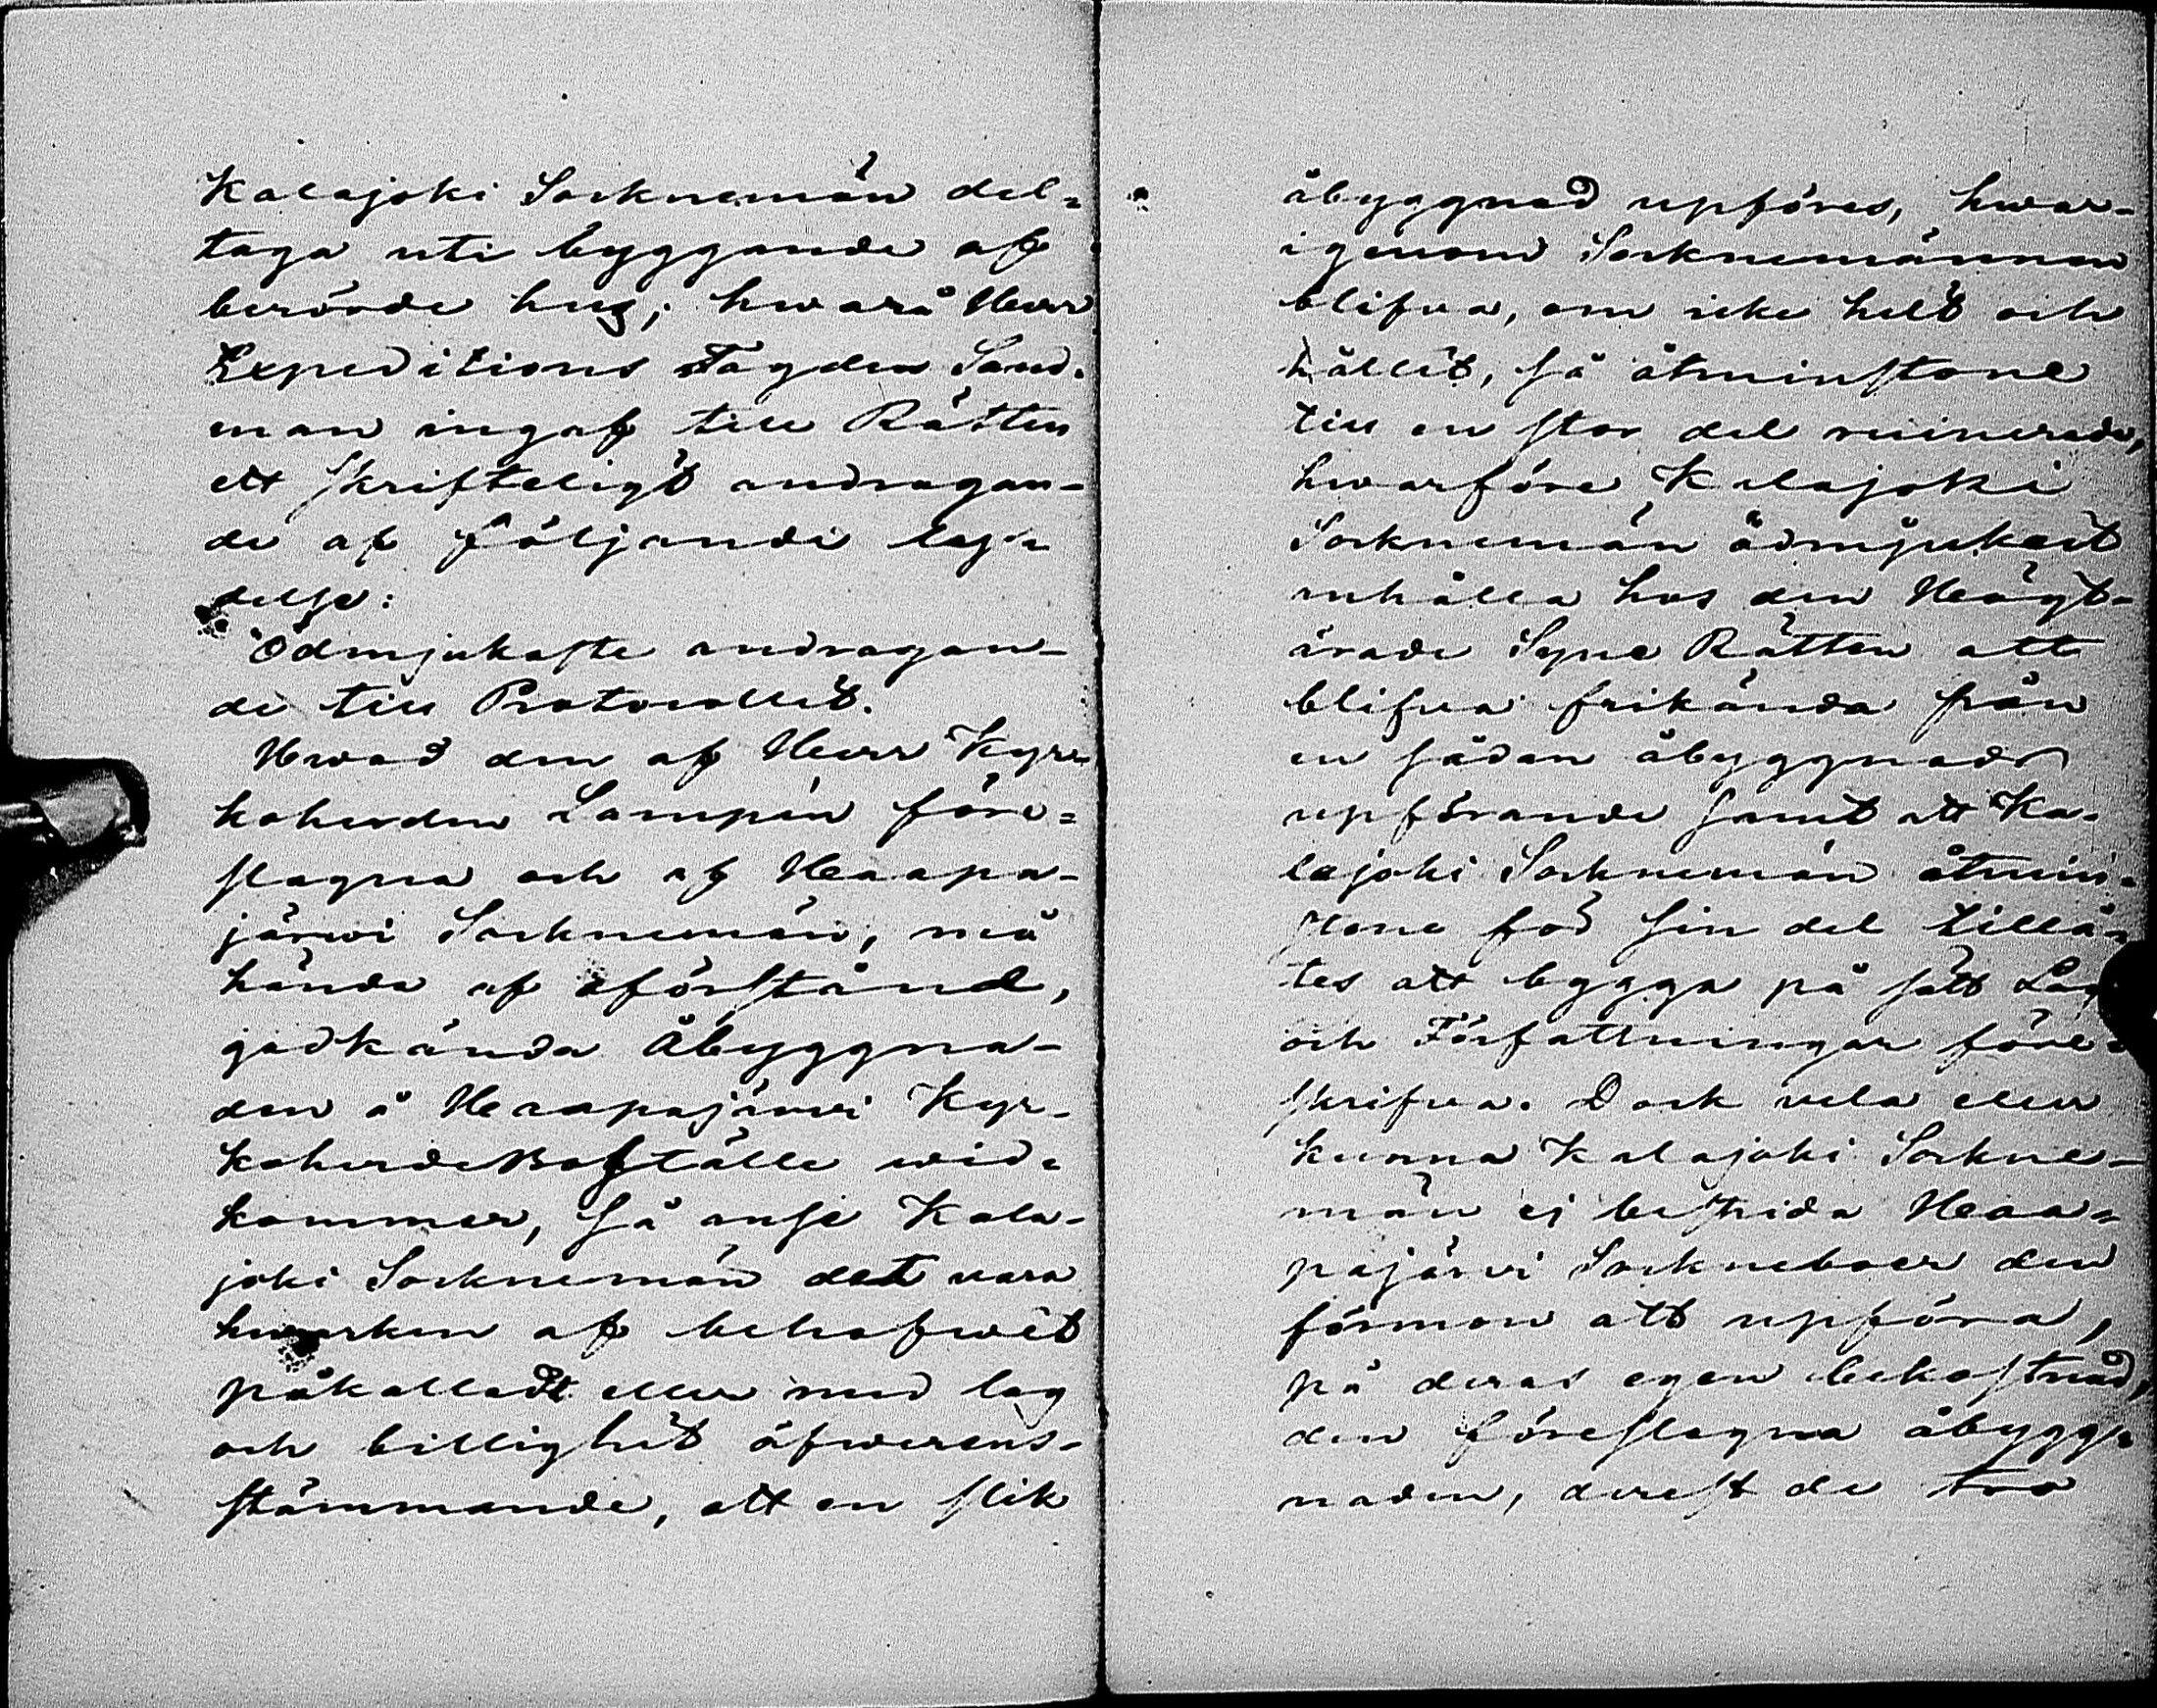 Kalajoki Socknemän del=
taga uti byggande af
berörde hus; hwarå Herr
Expeditions Fogden Sand-
man ingaf till Rätten
ett skrifteligt andragan-
de af följande ly=
delse:
Ödmjukaste andragan-
de till Protocollet.
Hwad den af Herr Kyr=
koherden Lampén före=
slagna och af Haapa-
järwi Socknemän, må
hända af oförstånd,
godkända Åbyggna-
den å Haapajärwi Kyr-
koherde Boställe wid=
kommer, så anse Kala-
joki Socknemän det vara
hwarken af behofwet
påkalladt eller med lag
och billighet öfwerens-
stämmande, att en slik
åbyggnad upföres, hwar-
igenom Socknemännen
blifva, om icke helt och
hållet, så åtminstone
till en stor del ruinerade,
hwarföre Kalajoki
Socknemän ödmjukast
anhålla hos den Högt-
ärade Syne Rätten att
blifva frikända från
en sådan åbyggnads
upförande samt att Ka-
lajoki Socknemän åtmin-
stone för sin del tillå-
tes att bygga på sätt Lag
och Författningar före=
skrifva. Dock vela eller
kunna Kalajoki Sockne-
män ej bestrida Haa=
pajärwi Sockneboer den
förmon att upföra,
på deras egen bekostnad,
den föreslagna åbygg=
naden, derest de tro